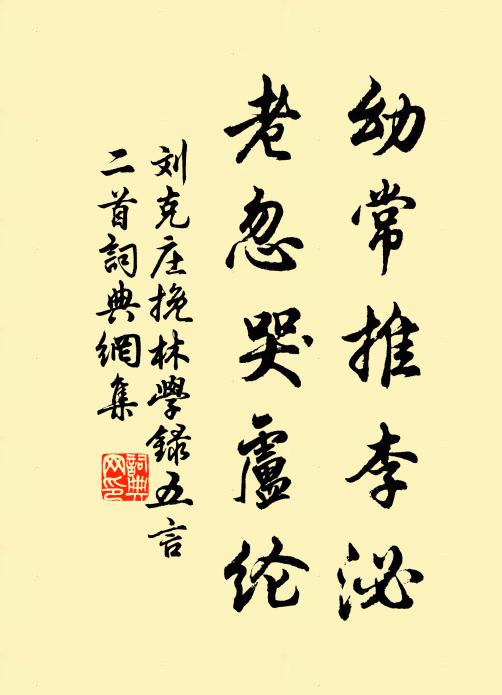 幼常推李泌
老忽哭盧纶
刘克庄挽林學録五言
二首詞典網集
詞典网印